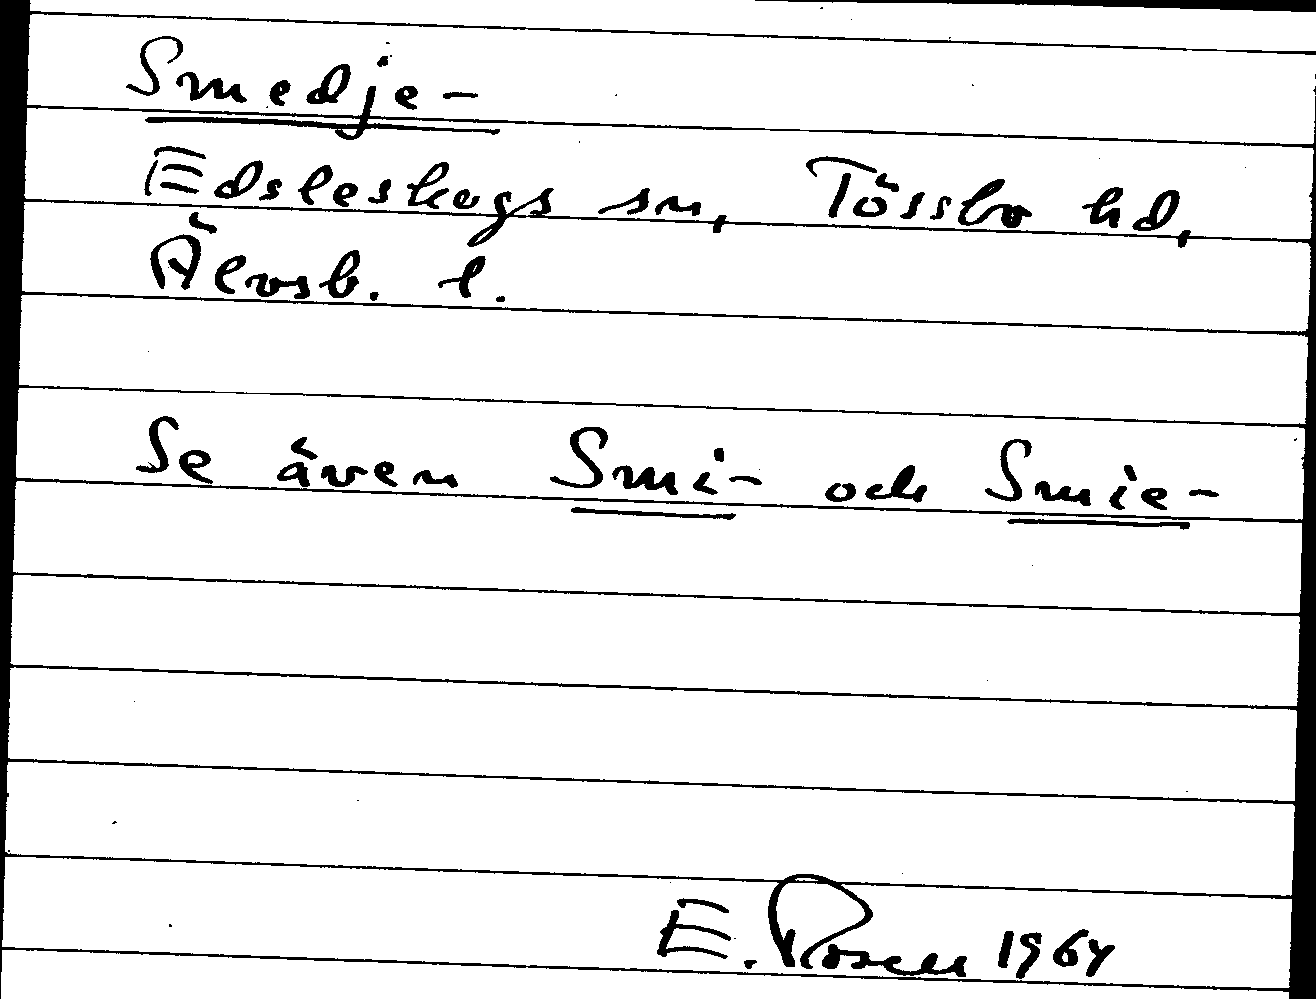 Smedje-
Edsleskogs sn, Tössbo hd,
Älvsb. l.
Se även Smi- och Smie-
E. Rosell 1964